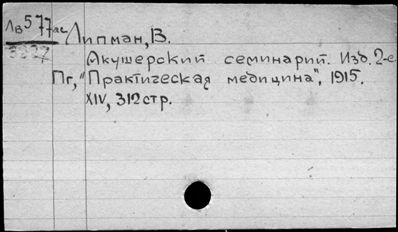 Лв577ас
Липман, В.
Акушерский семинарий. Изд. 2-е
Пг, "Практическая медицина", 1915.
XIV, 312 стр.